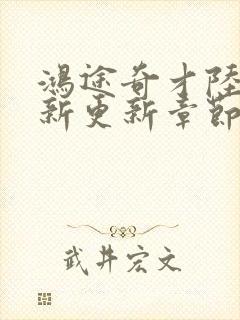 鴻途奇才陸
新更新章節
武井宏文